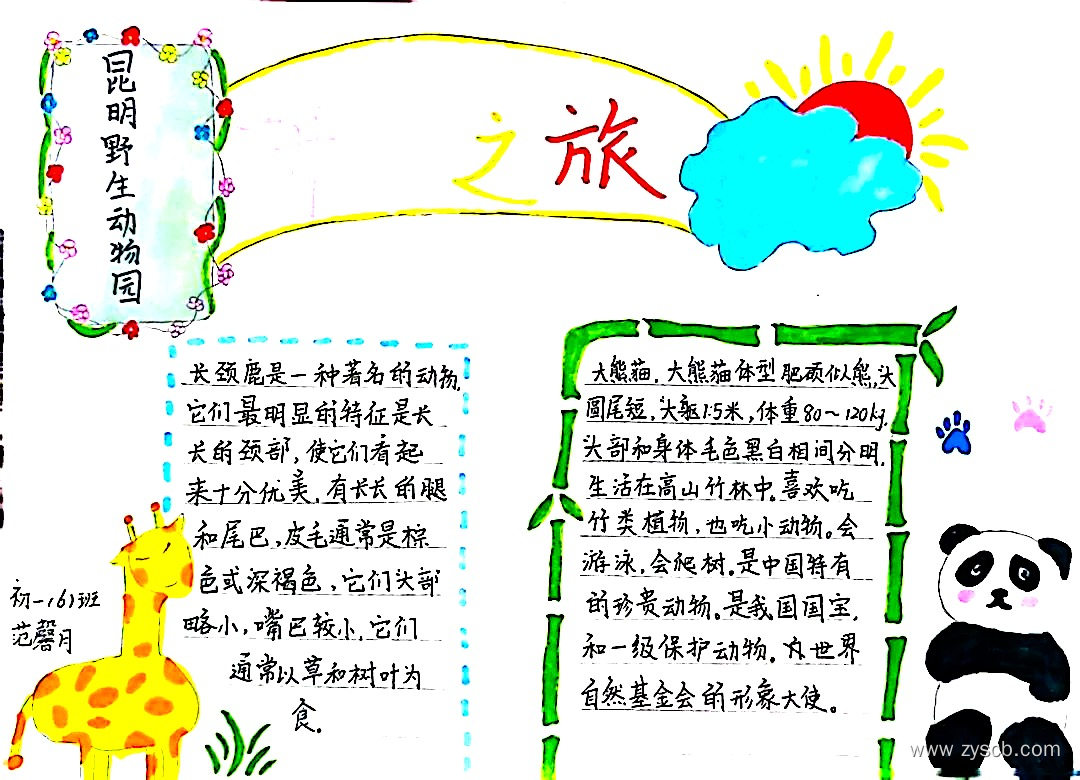 昆明野生动物园
之旅
长颈鹿是一种著名的动物.
它们最明显的特征是长
长的颈部,使它们看起
来十分优美.有长长的腿
和尾巴,皮毛通常是棕
色或深褐色,它们头部
略小,嘴巴较小.它们
通常以草和树叶为
食.
初一(6)班
范馨月
大熊猫.大熊猫体型肥硕似熊,头
圆尾短,头躯1.5米,体重80~120kg.
头部和身体毛色黑白相间分明.
生活在高山竹林中.喜欢吃
竹类植物,也吃小动物。会
游泳,会爬树.是中国特有
的珍贵动物.是我国国宝.
和一级保护动物。为世界
自然基金会的形象大使。
www.zyscb.com